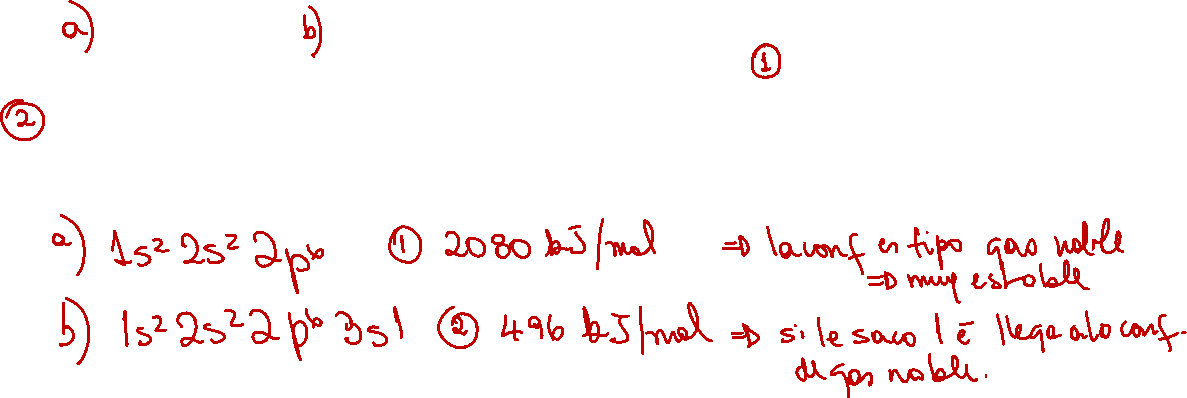 a) b)
①
②
a) 1s² 2s² 2p⁶ ① 2080 kJ/mol ⇒ la conf es tipo gas noble
⇒ muy estable
b) 1s² 2s² 2p⁶ 3s1 ② 496 kJ/mol ⇒ si le saco 1 é llega a la conf.
de gas noble.